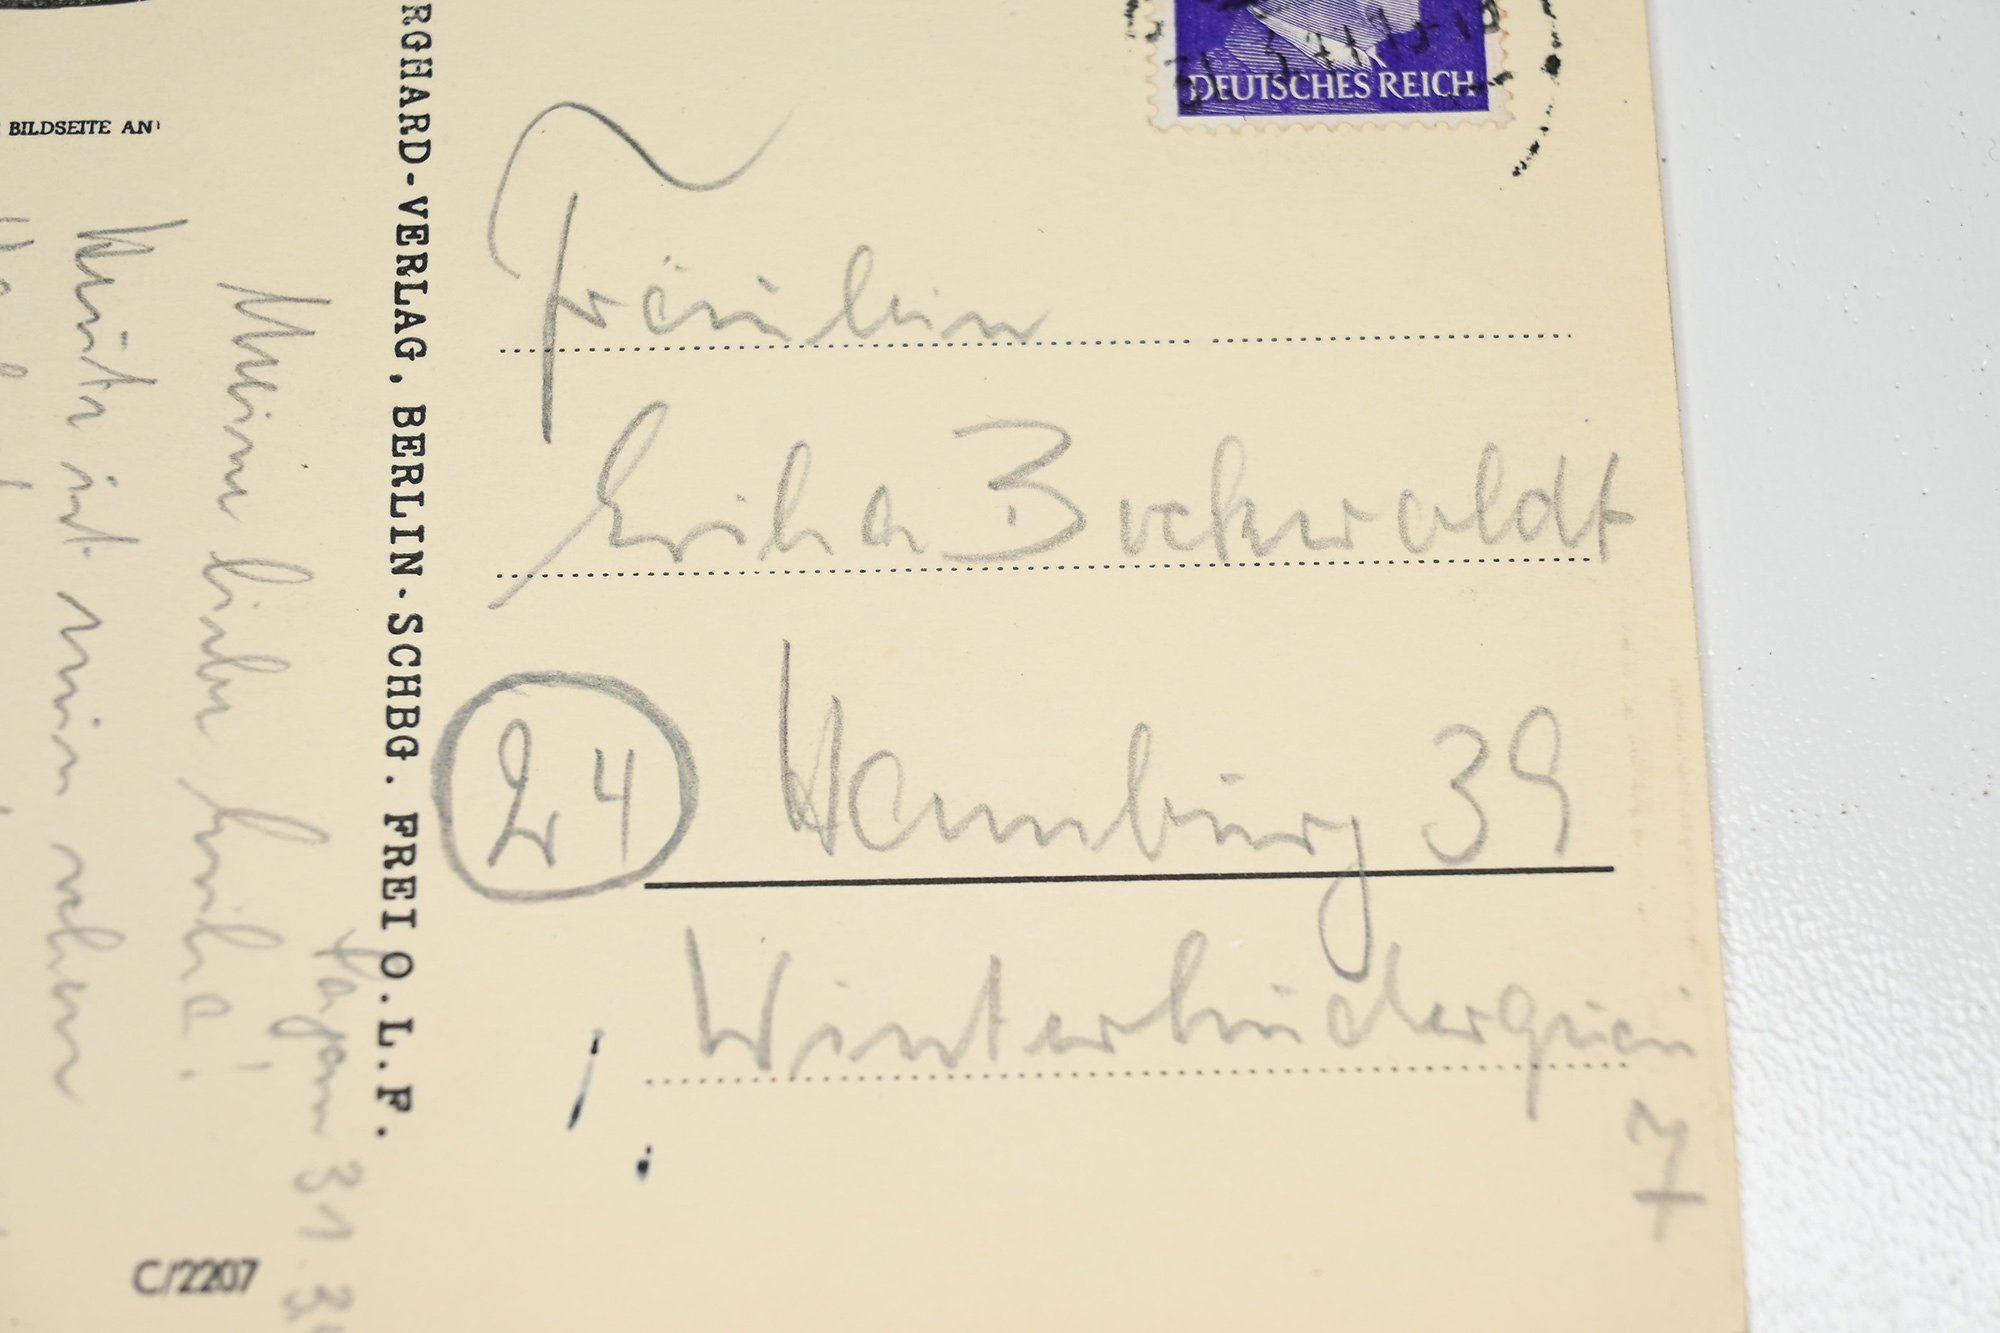 DEUTSCHES REICH
BILDSEITE AN
RGHARD-VERLAG, BERLIN-SCHBG. FREI O.L.F.
Fräulein
Erika Buckwaldt
24 Hamburg 39
Winterhuderquai
7
31.3
Meine liebe Erika!
Heute ist nun schon
C/2207